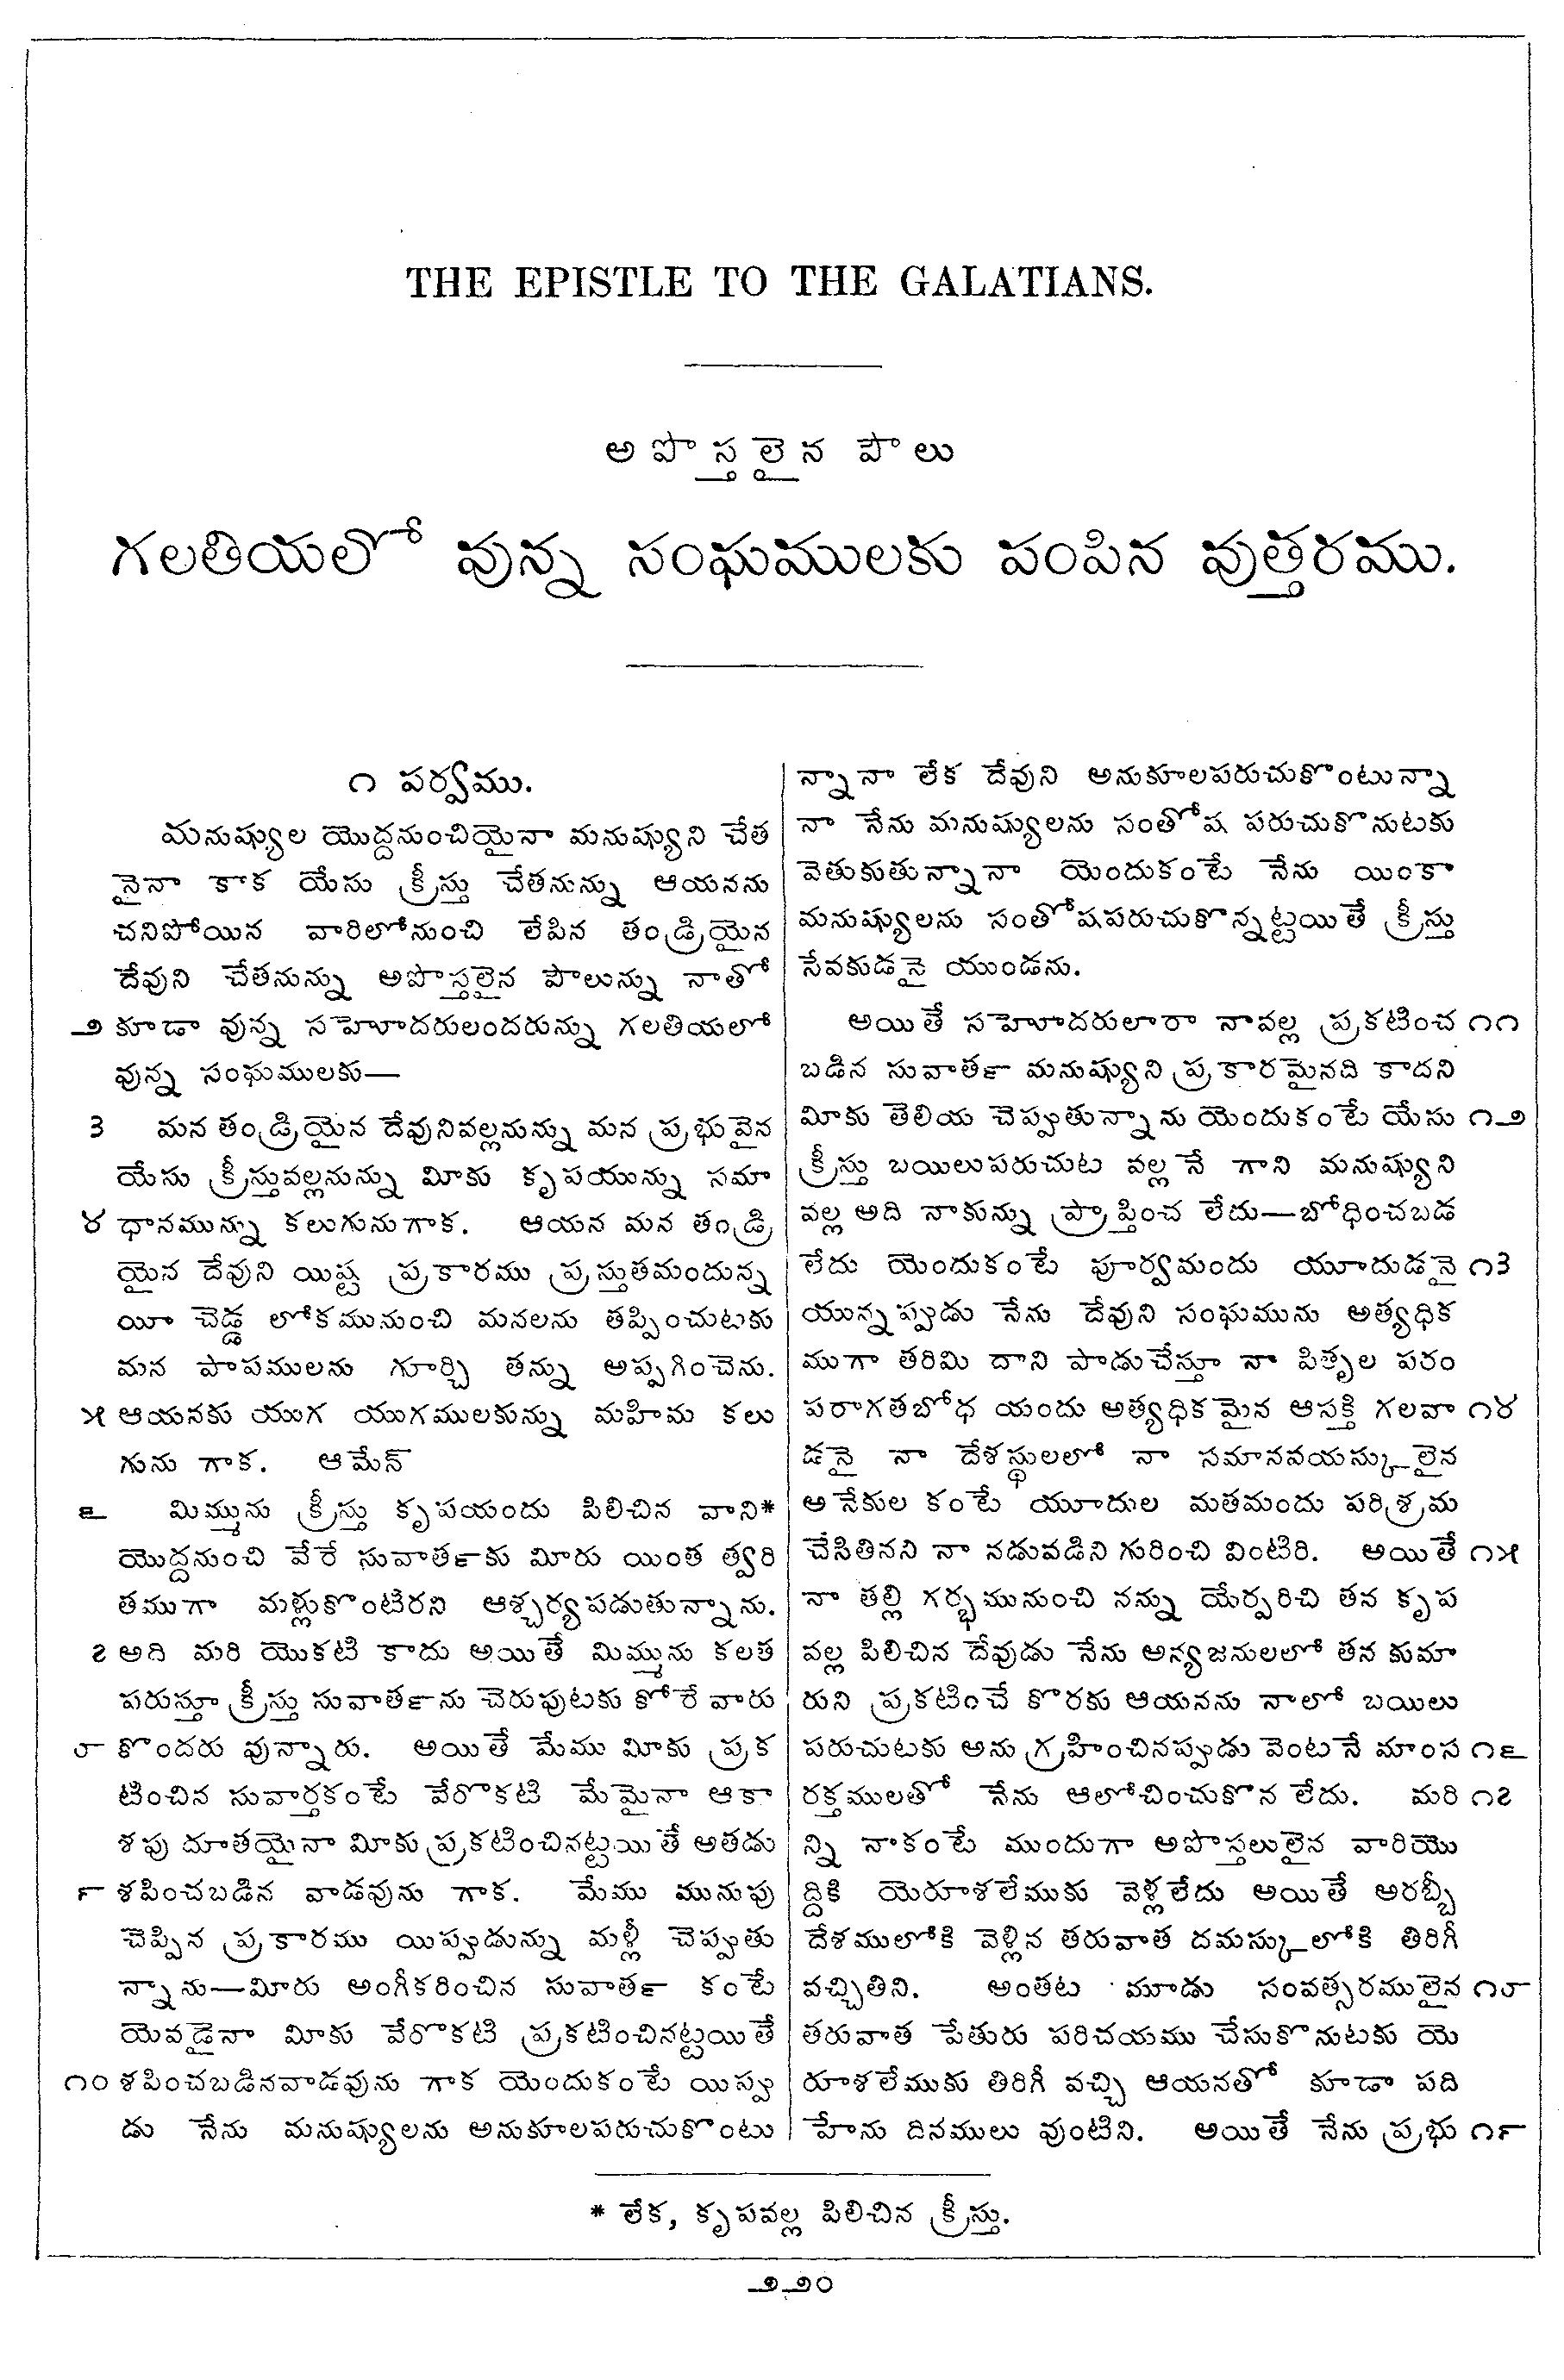 THE EPISTLE TO THE GALATIANS.
అపొస్తలైన పౌలు
గలతియలో వున్న సంఘములకు పంపిన వుత్తరము.
౧ పర్వము.
మనుష్యుల యొద్దనుంచియైనా మనుష్యుని చేత
నైనా కాక యేసు క్రీస్తు చేతనున్ను ఆయనను
చనిపోయిన వారిలోనుంచి లేపిన తండ్రియైన
దేవుని చేతనున్ను అపొస్తలైన పౌలున్ను నాతో
౨ కూడా వున్న సహోదరులందరున్ను గలతియలో
వున్న సంఘములకు—
౩ మన తండ్రియైన దేవునివల్లనున్ను మన ప్రభువైన
యేసు క్రీస్తువల్లనున్ను మీకు కృపయున్ను సమా
౪ ధానమున్ను కలుగునుగాక. ఆయన మన తండ్రి
యైన దేవుని యిష్ట ప్రకారము ప్రస్తుతమందున్న
యీ చెడ్డ లోకమునుంచి మనలను తప్పించుటకు
మన పాపములను గూర్చి తన్ను అప్పగించెను.
౫ ఆయనకు యుగ యుగములకున్ను మహిమ కలు
గును గాక. ఆమేన్
౬ మిమ్మును క్రీస్తు కృపయందు పిలిచిన వాని*
యొద్దనుంచి వేరే సువార్తకు మీరు యింత త్వరి
తముగా మళ్లుకొంటిరని ఆశ్చర్యపడుతున్నాను.
౭ అది మరి యొకటి కాదు అయితే మిమ్మును కలత
పరుస్తూ క్రీస్తు సువార్తను చెరుపుటకు కోరే వారు
౮ కొందరు వున్నారు. అయితే మేము మీకు ప్రక
టించిన సువార్తకంటే వేరొకటి మేమైనా ఆకా
శపు దూతయైనా మీకు ప్రకటించినట్టయితే అతడు
౯ శపించబడిన వాడవును గాక. మేము మునుపు
చెప్పిన ప్రకారము యిప్పుడున్ను మళ్లీ చెప్పుతు
న్నాను—మీరు అంగీకరించిన సువార్త కంటే
యెవడైనా మీకు వేరొకటి ప్రకటించినట్టయితే
౧౦ శపించబడినవాడవును గాక యెందుకంటే యిప్పు
డు నేను మనుష్యులను అనుకూలపరుచుకొంటు
న్నానా లేక దేవుని అనుకూలపరుచుకొంటున్నా
నా నేను మనుష్యులను సంతోష పరుచుకొనుటకు
వెతుకుతున్నానా యెందుకంటే నేను యింకా
మనుష్యులను సంతోషపరుచుకొన్నట్టయితే క్రీస్తు
సేవకుడనై యుండను.
అయితే సహోదరులారా నావల్ల ప్రకటించ ౧౧
బడిన సువార్త మనుష్యుని ప్రకారమైనది కాదని
మీకు తెలియ చెప్పుతున్నాను యెందుకంటే యేసు ౧౨
క్రీస్తు బయిలుపరుచుట వల్లనే గాని మనుష్యుని
వల్ల అది నాకున్ను ప్రాప్తించ లేదు—బోధించబడ
లేదు యెందుకంటే పూర్వమందు యూదుడనై ౧౩
యున్నప్పుడు నేను దేవుని సంఘమును అత్యధిక
ముగా తరిమి దాని పాడుచేస్తూ నా పితృల పరం
పరాగతబోధ యందు అత్యధికమైన ఆసక్తి గలవా ౧౪
డనై నా దేశస్థులలో నా సమానవయస్కులైన
అనేకుల కంటే యూదుల మతమందు పరిశ్రమ
చేసితినని నా నడువడిని గురించి వింటిరి. అయితే ౧౫
నా తల్లి గర్భమునుంచి నన్ను యేర్పరిచి తన కృప
వల్ల పిలిచిన దేవుడు నేను అన్యజనులలో తన కుమా
రుని ప్రకటించే కొరకు ఆయనను నాలో బయిలు
పరుచుటకు అనుగ్రహించినప్పుడు వెంటనే మాంస ౧౬
రక్తములతో నేను ఆలోచించుకొన లేదు. మరి ౧౭
న్ని నాకంటే ముందుగా అపొస్తలులైన వారియొ
ద్దికి యెరూశలేముకు వెళ్లలేదు అయితే అరబ్బీ
దేశములోకి వెళ్లిన తరువాత దమస్కులోకి తిరిగీ
వచ్చితిని. అంతట మూడు సంవత్సరములైన ౧౮
తరువాత పేతురు పరిచయము చేసుకొనుటకు యె
రూశలేముకు తిరిగీ వచ్చి ఆయనతో కూడా పది
హేను దినములు వుంటిని. అయితే నేను ప్రభు ౧౯
* లేక, కృపవల్ల పిలిచిన క్రీస్తు.
౨౨౦